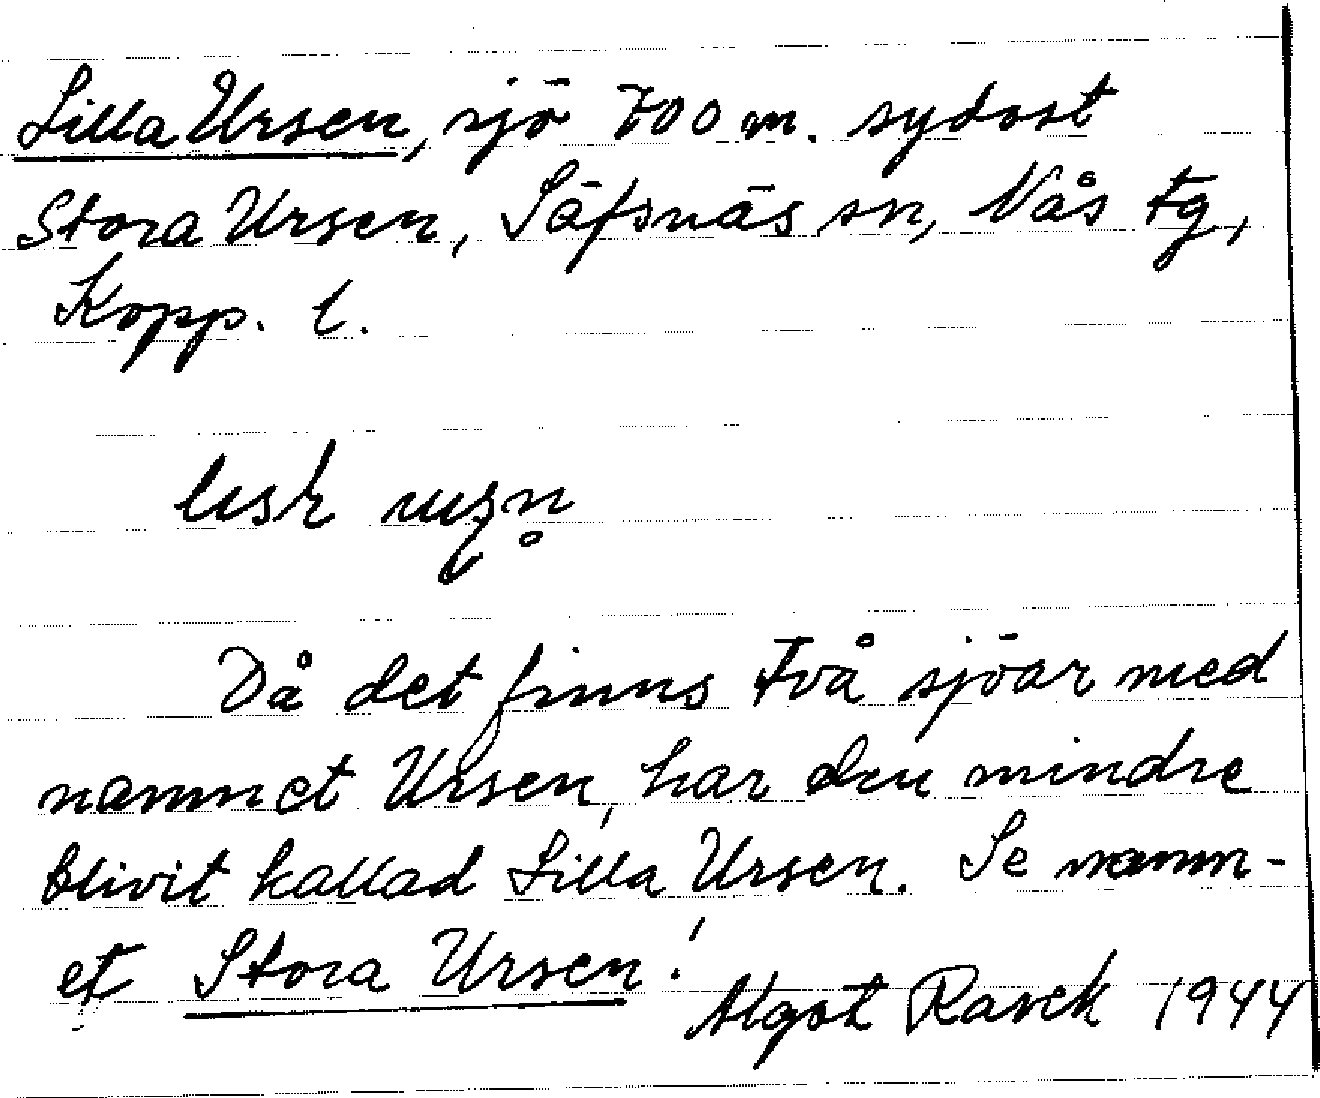 Lilla Ursen, sjö 700 m. sydost
Stora Ursen, Säfsnäs sn, Nås tg,
Kopp. l.
Då det finns två sjöar med
namnet Ursen, har den mindre
blivit kallad Lilla Ursen. Se namn-
et Stora Ursen!
Algot Rasck 1944